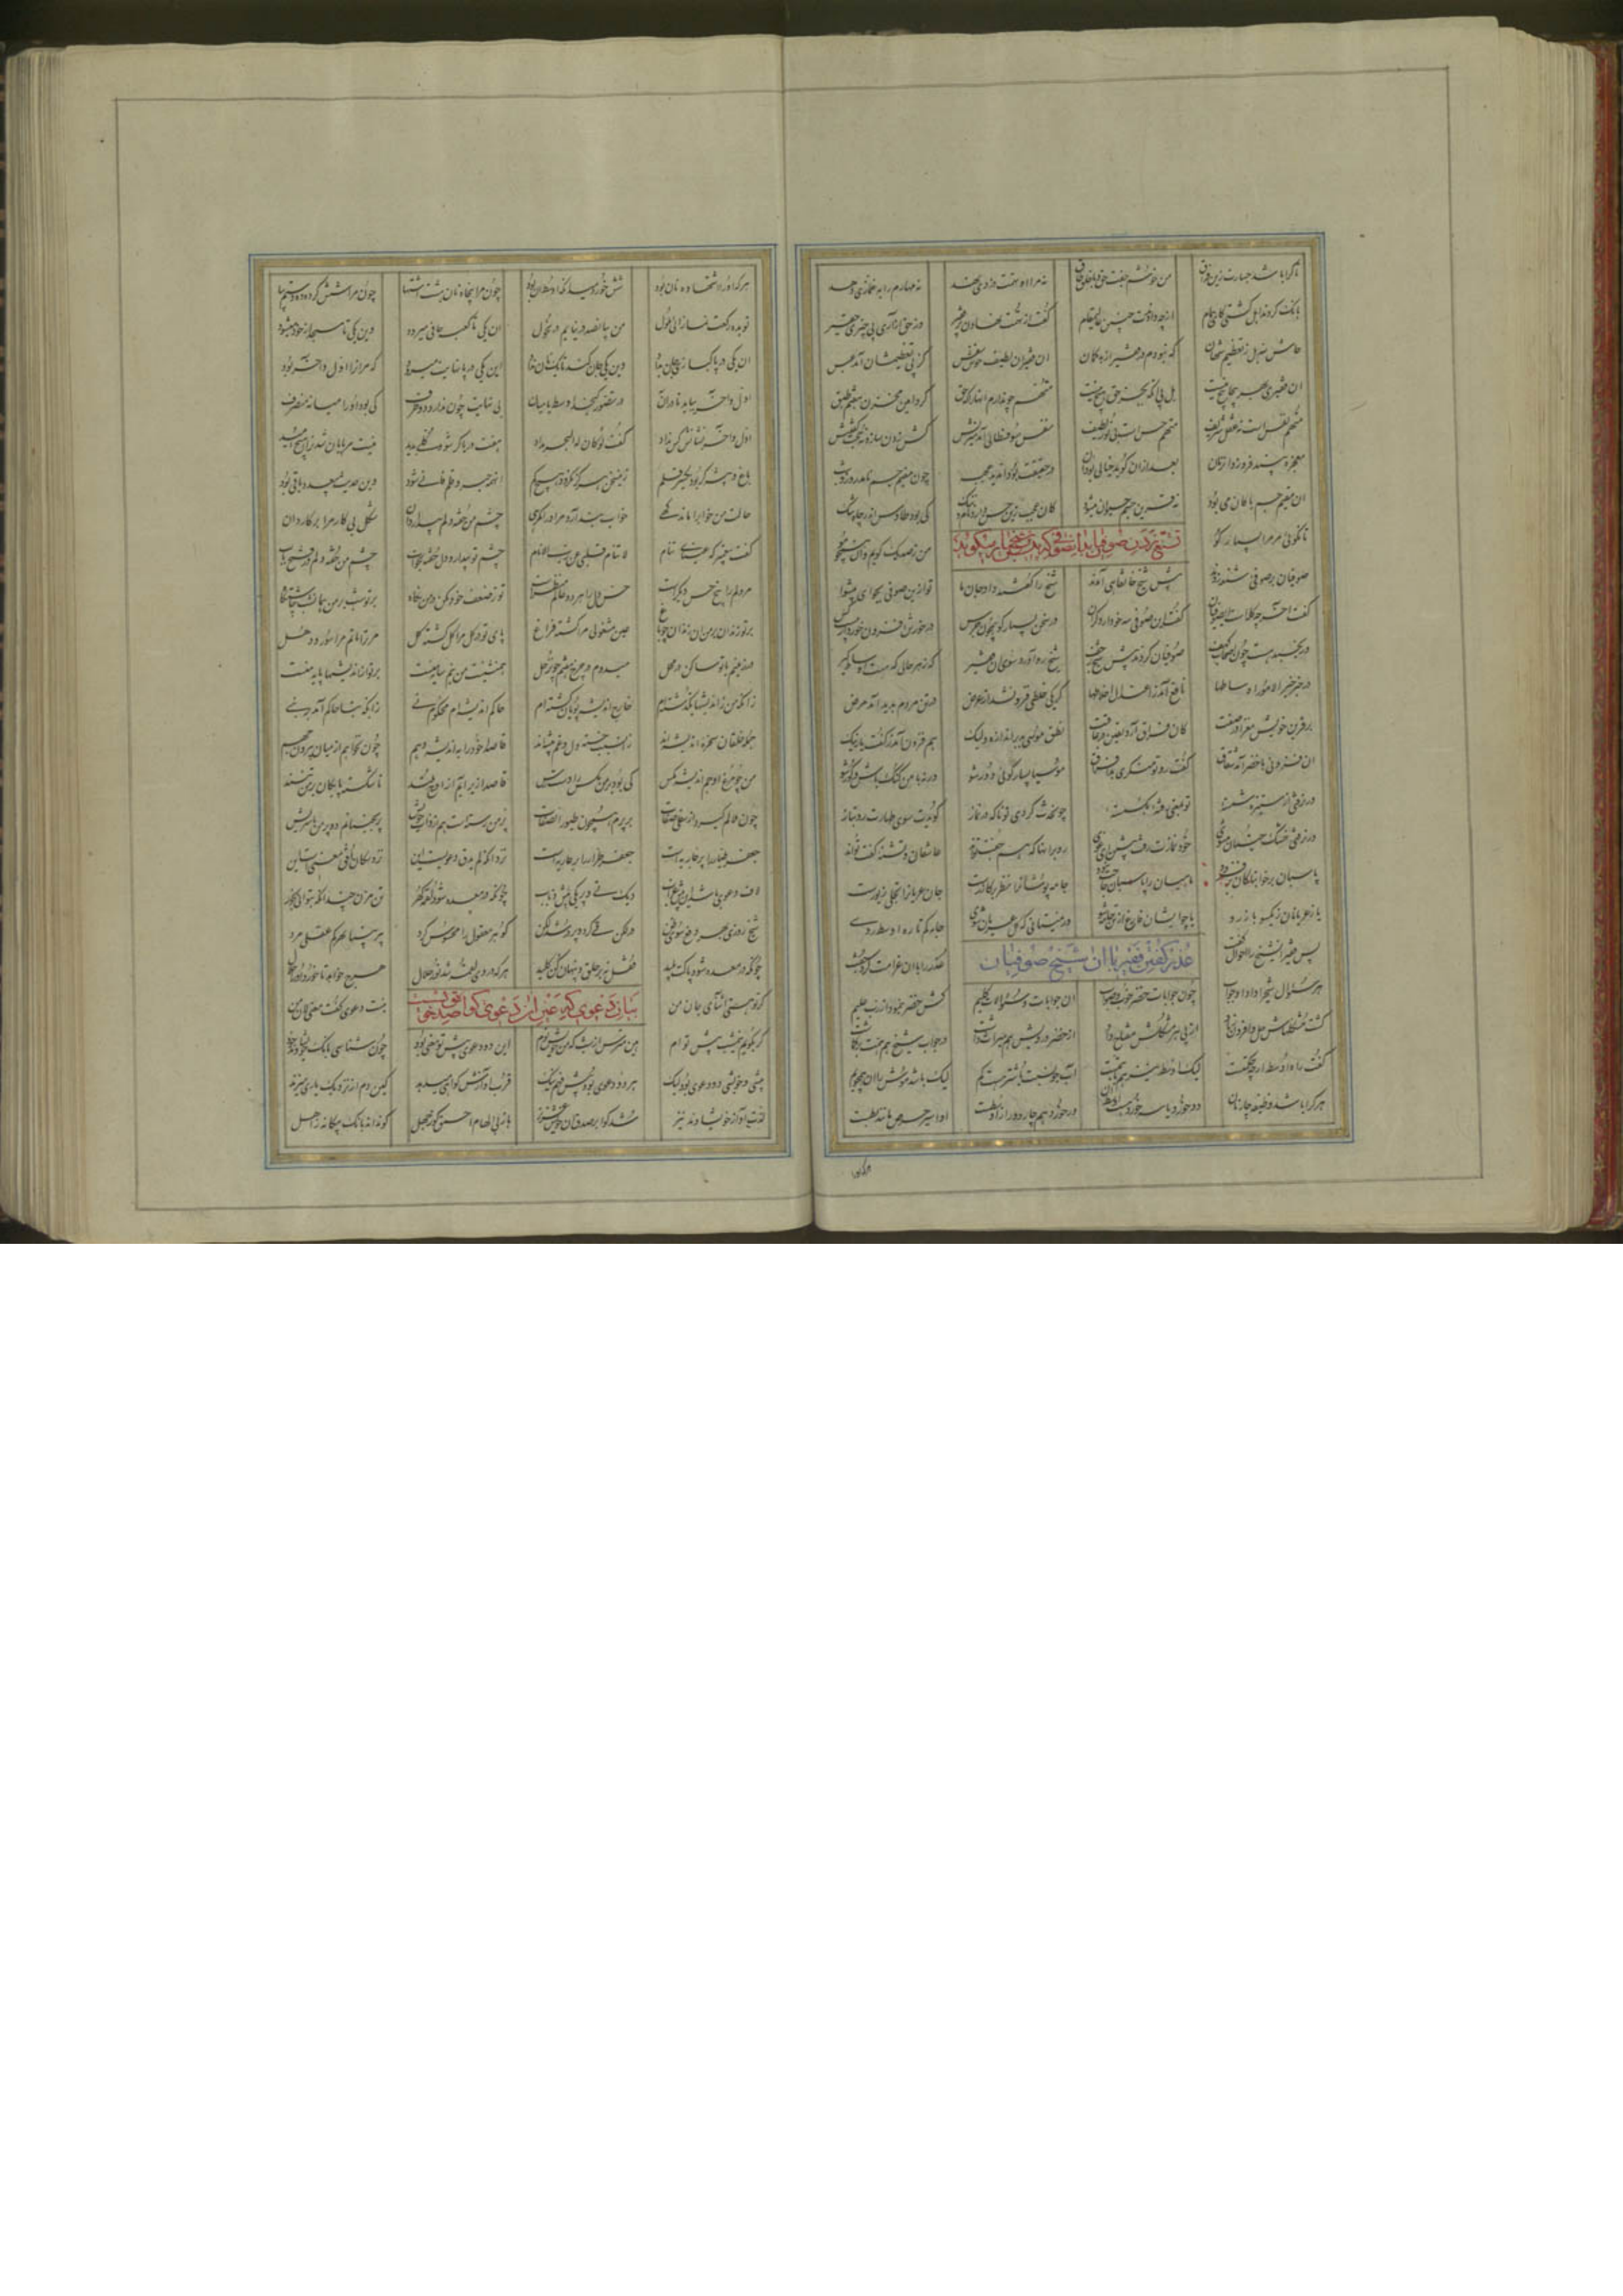 تا کرا باشد خسارت زین فراق من خوشم جفت حق و با خلق طاق نه مرا او تهمت دزدی نهد نه مهارم را به غمازی دهد
بانک کردند اهل کشتی کای همام از چه دادندت چنین عالی مقام گفت از تهمت نهادن بر فقیر وز حق آزاری پی چیزی حقیر
حاش لله بل ز تعظیم شهان که نبودم در فقیران بدکمان ان فقیران لطیف خوش نفس کز پی تعظیمشان آمد عبس
ان فقیری بهر پیچاپیچ نیست بل پی انکه بجز حق هیچ نیست متهم چون دارم انها را که حق کرد امین مخزن هفتم طبق
متهم نفس است نه عقل شریف متهم حس است نی نور لطیف نفس سوفسطائی آمد میزنش کش زدن سازد نه حجت گفتنش
معجزه بیند فروزد ان زمان بعد ازان کوید خیالی بود ان ور حقیقت بود ان دید عجب چون مقیم چشم نامد روز و شب
ان مقیم چشم پاکان می بود نه قرین چشم حیوان میشود کان عجب زین حس دارد عار و ننک کی بود طاوس اندر چاه تنک
تا نکوئی مر مرا بسیار کو من ز صد یک کویم و ان همچو مو
تشنیع زدن صوفیان بر ان صوفی که بسیار میکوید
صوفیان بر صوفی شنعه زدند پیش شیخ خانقاهی آمدند شیخ را گفتند داد جان ما تو ازین صوفی بجو ای پیشوا
گفت آخر چه کله است ای صوفیان گفت این صوفی سه خو دارد کران در سخن بسیار کو همچون جرس در خورش افزون خورد از بیست کس
ور بخسبد هست چون اصحاب کهف صوفیان کردند پیش شیخ زحف شیخ رو آورد سوی ان فقیر که ز هر حالی که هست اوساط کیر
در خبر خیر الامور اوساطها نافع آمد ز اعتدال اخلاطها کر یکی خلطی فزون شد از عرض در تن مردم پدید آمد مرض
بر قرین خویش مفزا در صفت کان فراق آرد یقین در عاقبت نطق موسی بد بر اندازه ولیک هم فزون آمد ز گفت یار نیک
ان فزونی با خضر آمد شقاق گفت رو تو مکثری هذا فراق موسیا بسیار کوئی دور شو ورنه با من کنک باش و کور شو
ور نرفتی از ستیزه شسته تو بمعنی رفته بکسسته چون حدث کردی تو ناکه در نماز کویدت سوی طهارت رو بتاز
ور نرفتی خشک جنبان میشوی خود نمازت رفت پیشین ای غوی رو بر انها که هم جفت تواند عاشقان و تشنه گفت تواند
پاسبان بر خوابناکان بر فزود ماهیان را پاسبان حاجت نبود جامه پوشان را نظر بر کازرست جان عریان را تجلی زیورست
یا ز عریانان بیکسو باز رو یا چو ایشان فارغ از تن جامه شو ور نمیتانی که کل عریان شوی جامه کم کن تا ره اوسط روی
پس فقیر ان شیخ را احوال گفت عذر را با ان غرامت کرد جفت
عذر گفتن فقیر با ان شیخ صوفیان
هر سئوال شیخ را داد او جواب چون جوابات خضر خوب و صواب ان جوابات و سئوالات کلیم کش خضر بنمود از رب علیم
کشت مشکلهاش حل و افزون زیاد از پی هر مشکلش مفتاح داد از خضر درویش هم میراث داشت در جواب شیخ همت بر کماشت
گفت راه اوسط ار چه حکمتست لیک اوسط نیز هم با نسبتست اب جو نسبت باشتر هست کم لیک باشد موش را ان همچو یم
هر کرا باشد وظیفه چار نان دو خورد یا سه خورد هست اوسط ان ور خورد هر چار دور از اوسطست او اسیر حرص مانند بطست
هر که او را اشتها ده نان بود شش خورد میدان که اوسط ان بود چون مرا پنجاه نان هست اشتها
تو بده رکعت نماز آئی ملول من بپانصد در نیایم در نحول ان یکی تا کعبه حافی میرود وین یکی تا مسجد از خود میشود
ان یکی در پاکبازی جان بداد وین یکی جان کند تا یک نان بداد این یکی در بانهایت میرود که مر انرا اول و آخر بود
اول و آخر بباید تا در ان در تصور کنجد اوسط یا میان بی نهایت چون ندارد دو طرف کی بود او را میانه منصرف
اول و آخر نشانش کس نداد گفت لو کان له البحر مداد هفت دریا کر شود کلی مدید نیست مر پایان شدن را هیچ امید
باغ و بیشه کر بود یکسر قلم زین سخن هرکز نکردد هیچ کم ان همه حبر و قلم فانی شود وین حدیث بی عدد باقی بود
حالت من خواب را ماند کهی خواب پندارد مر انرا کمرهی چشم من خفته دلم بیدار دان شکل بی کار مرا بر کار دان
گفت پیغمبر که عینای تنام لا ینام قلبی عن رب الانام چشم تو بیدار و دل خفته بخواب چشم من خفته دلم در فتح باب
مر دلم را پنج حس دیکرست حس دل را هر دو عالم منظرست تو ز ضعف خود مکن در من نکاه بر تو شب بر من همان شب چاشتکاه
بر تو زندان بر من ان زندان چو باغ عین مشغولی مرا کشته فراغ پای تو در کل مرا کل کشته کل مر ترا ماتم مرا سور و دهل
در زمینم با تو ساکن در محل میدوم بر چرخ هفتم چون زحل همنشینت من نیم سایه منست برتر از اندیشها پایه منست
زانکه من ز اندیشها بکذشته ام خارج اندیشه پویان کشته ام حاکم اندیشه ام محکوم نی زانکه بنا حاکم آمد بر بنی
جمله خلقان سخره اندیشه اند زان سبب خسته دل و غم پیشه اند قاصدا خود را باندیشه دهم چون بخواهم از میان بیرون جهم
من چو مرغ اوجم اندیشه مکس کی بود بر من مکس را دست رس قاصدا زیر آیم از اوج بلند تا شکسته پایکان بر من تنند
چون ملالم کیرد از سفلی صفات بر پرم همچون طیور الصافات پر من رستست هم از ذات خویش بر نچفسانم دو پر من با سریش
جعفر طیار را پر جاریه است جعفر طرار را پر عاریه است نزد انکه لم یذق دعویست این نزد سکان افق معنیست این
لاف و دعوی باشد این پیش غراب دیک تی و پر یکی پیش ذباب چونکه در معده شود لقمه کهر تن مزن چندانکه بتوانی بخور
شیخ روزی بهر دفع سوء ظن در لکن قی کرد پر در شد لکن کوهر معقول را محسوس کرد پیر بینا بهر کم عقلی مرد
چونکه در معده شود پاکت پلید قفل نه بر حلق و پنهان کن کلید هر که در وی لقمه شد نور جلال هر چه خواهد تا خورد او را حلال
کر تو هستی آشنای جان من نیست دعوی گفت معنی لان من
بیان دعوی که عین ان دعوی کواه صدق خویشست
کر بکویم نیم شب پیش توام هین مترس از شب که من خویش توام این دو دعوی پیش تو معنی بود چون شناسی بانک خویشاوند خود
پیشی و خویشی دو دعوی بود لیک هر دو دعوی بود پیش فهم نیک قرب آوازش کواهی میدهد کین دم از نزدیک یاری میجهد
لذت آواز خویشاوند نیز شد کوا بر صدق ان خویش عزیز باز بی الهام احمق کو ز جهل می نداند بانک بیکانه ز اهل